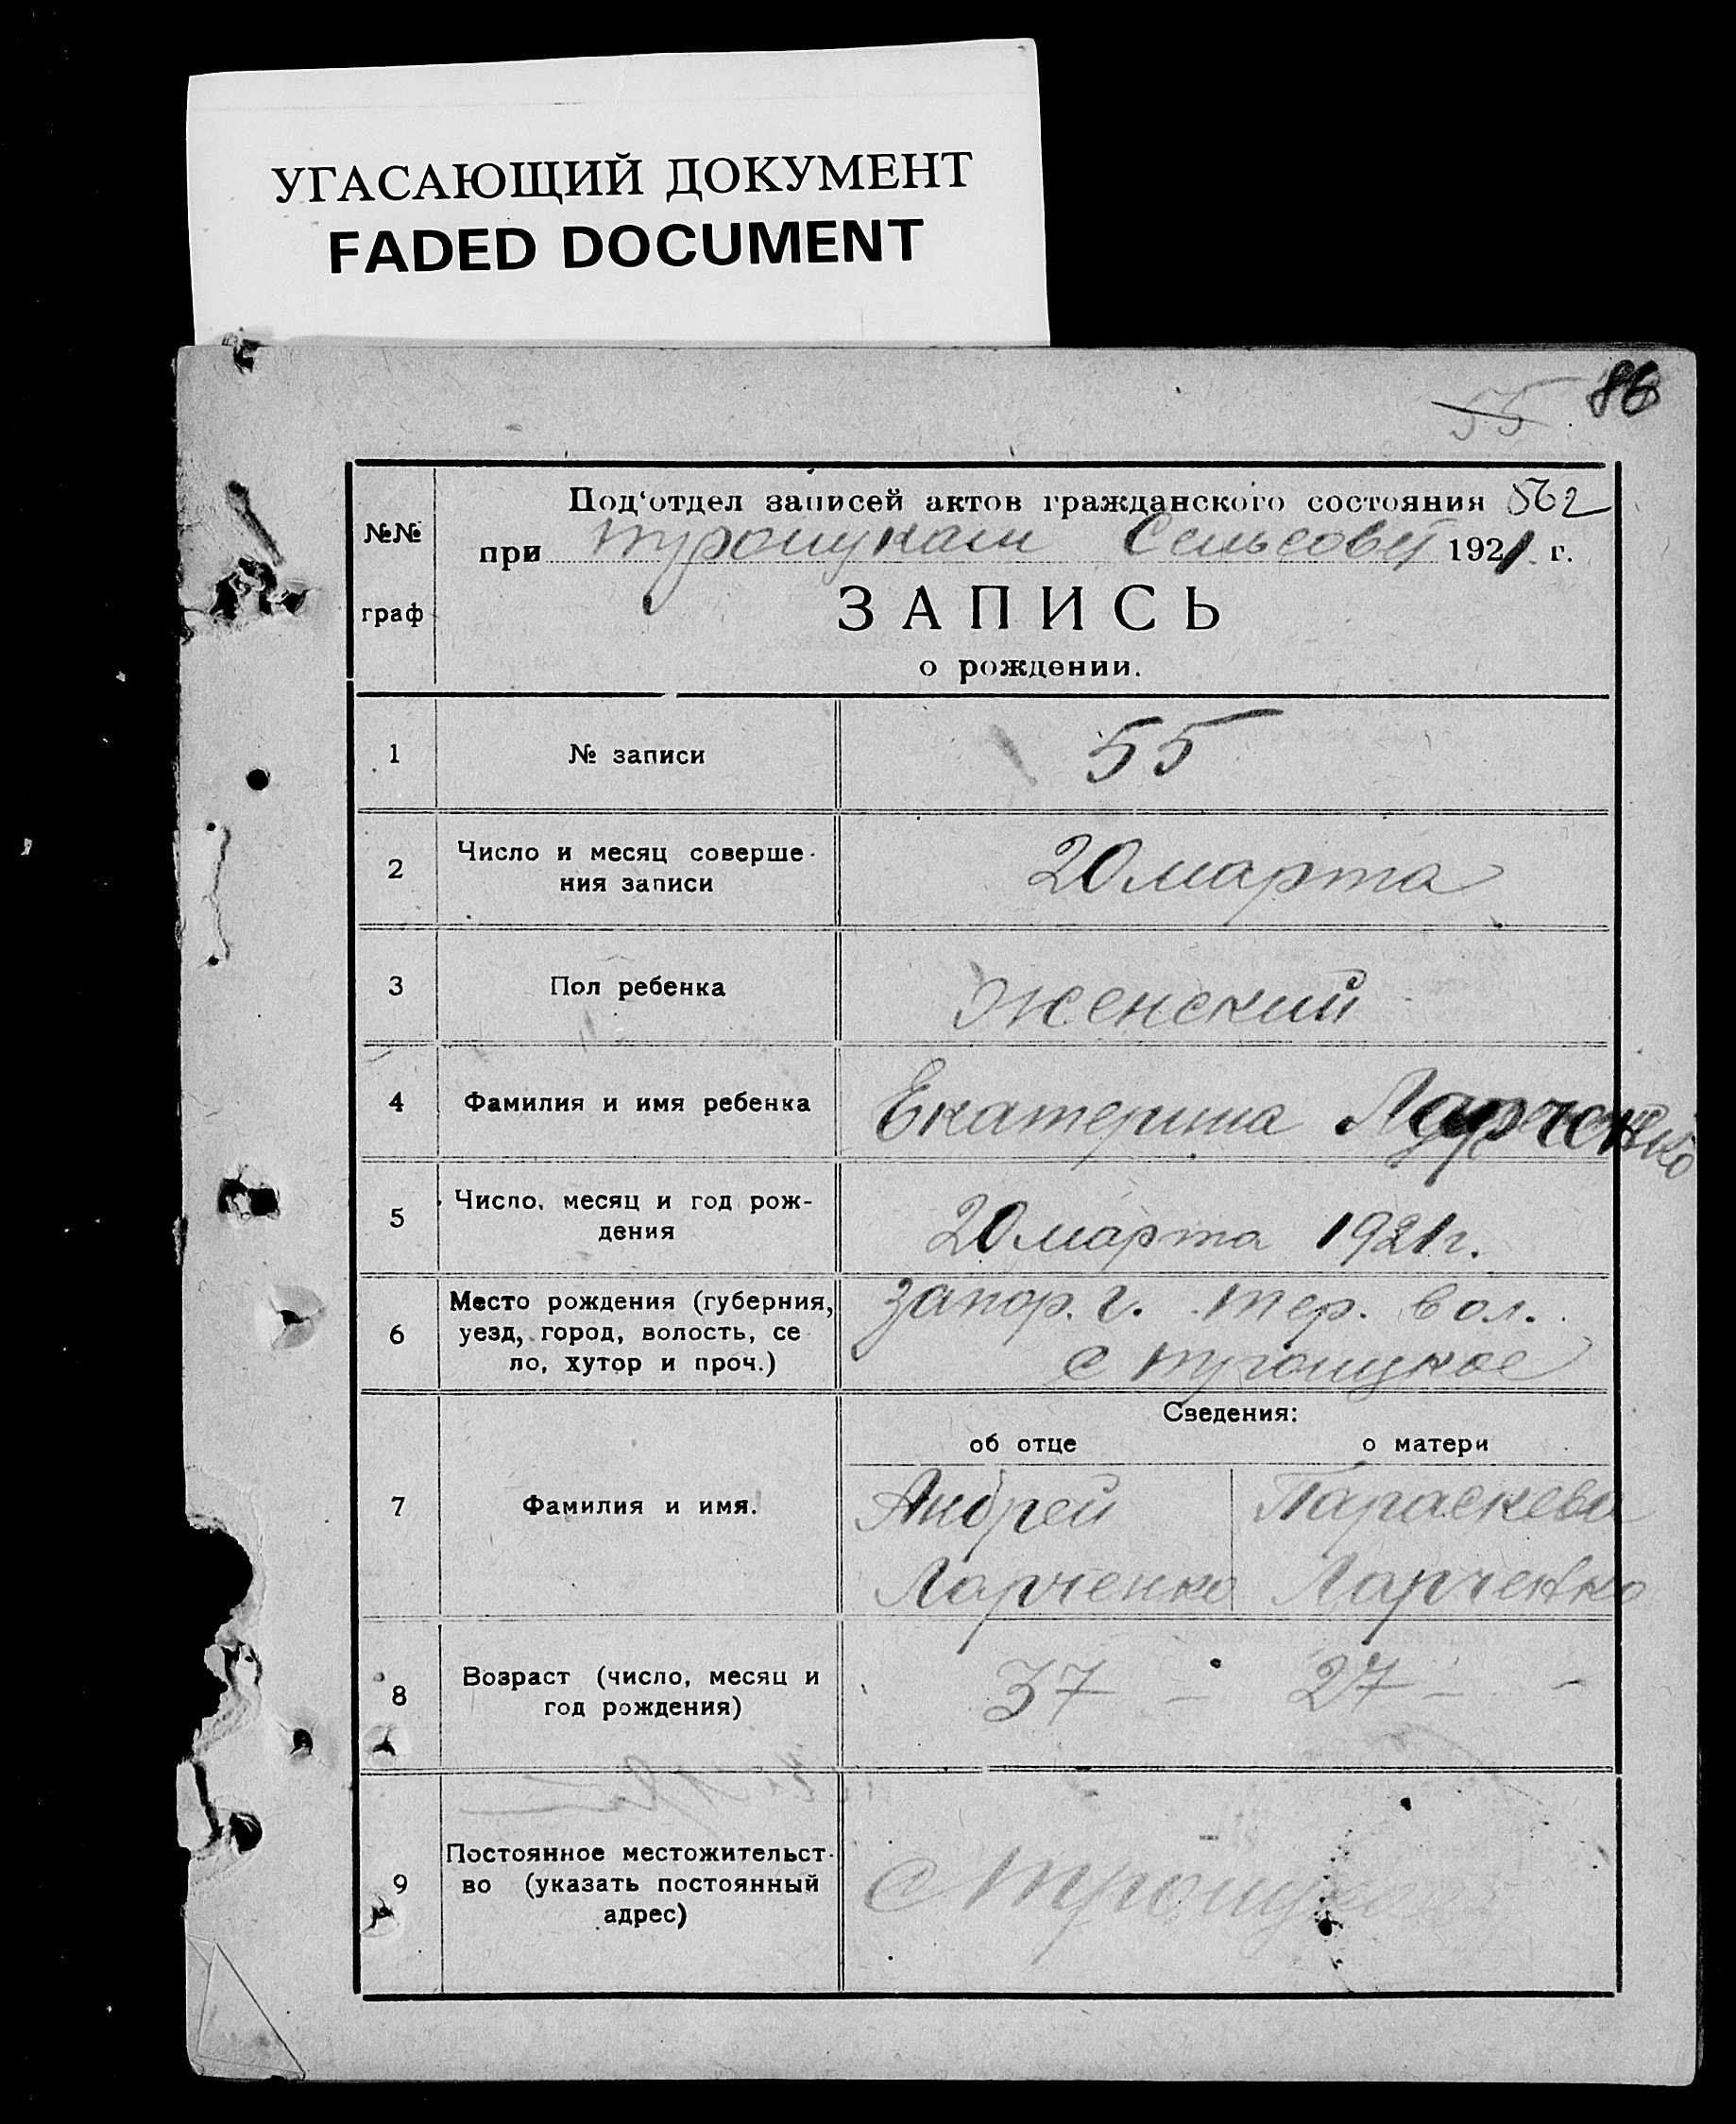 УГАСАЮЩИЙ ДОКУМЕНТ
FADED DOCUMENT
55 86
Под‘отдел записей актов гражданского состояния 562
№№
при Троицкам Сельсовет 1921 г.
граф
ЗАПИСЬ
о рождении.
1 № записи 55
2 Число и месяц соверше-
ния записи 20 марта
3 Пол ребенка Женский
4 Фамилия и имя ребенка Екатерина Ларченко
5 Число, месяц и год рож-
дения 20 марта 1921 г.
Место рождения (губерния, Запор. г. Тер. вол.
6 уезд, город, волость, се
ло, хутор и проч.) с Троицкое
Сведения:
об отце о матери
7 Фамилия и имя. Андрей Параскева
Ларченко Ларченко
8 Возраст (число, месяц и
год рождения) 37 – 27 – –
Постоянное местожительст-
9 во (указать постоянный с
адрес)